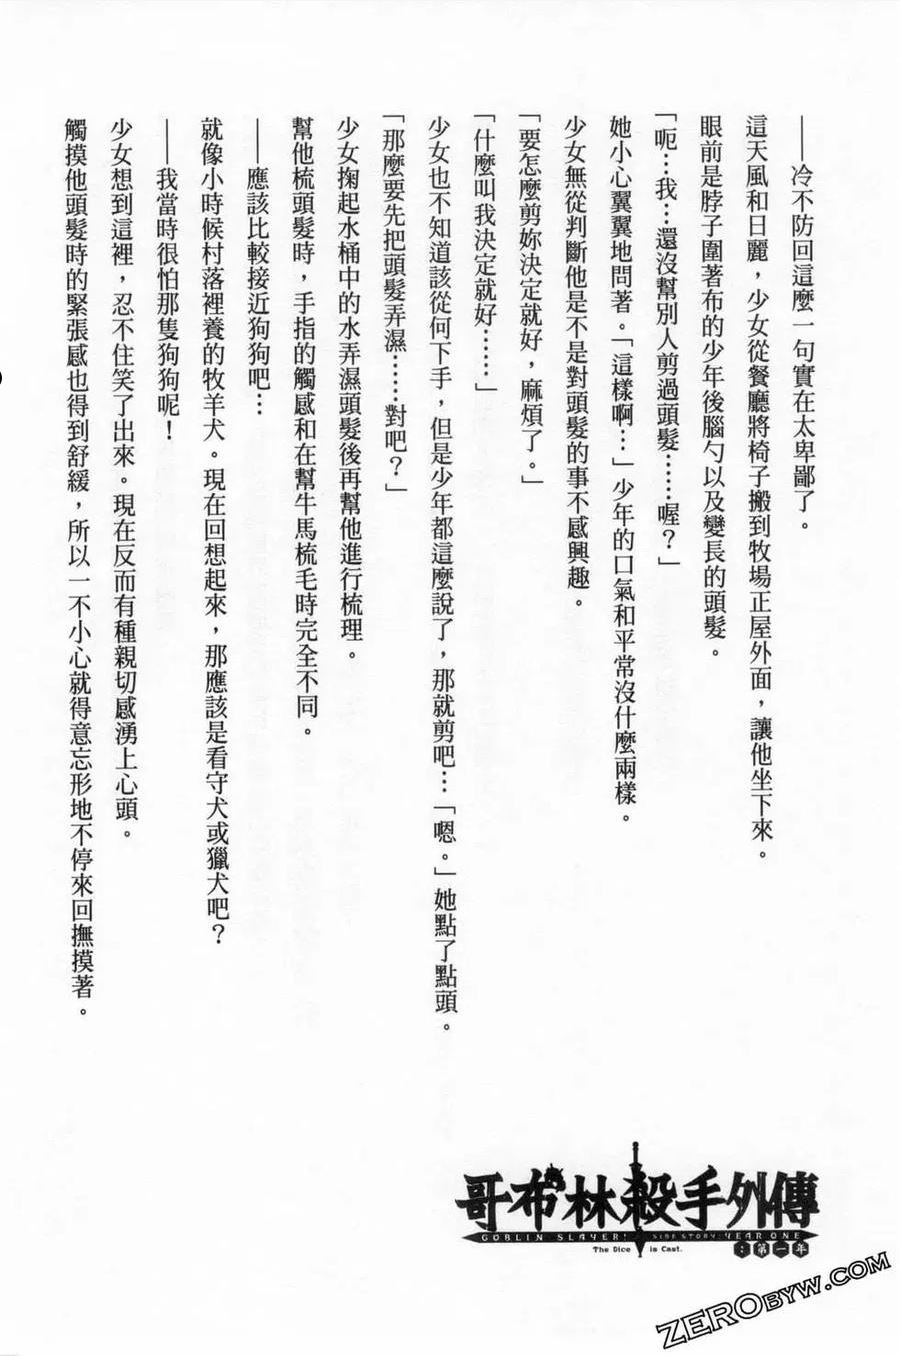 ——冷不防回這麼一句實在太卑鄙了。
這天風和日麗，少女從餐廳將椅子搬到牧場正屋外面，讓他坐下來。
眼前是脖子圍著布的少年後腦勺以及變長的頭髮。
「呃…我…還沒幫別人剪過頭髮……喔？」
她小心翼翼地問著。「這樣啊…」少年的口氣和平常沒什麼兩樣。
少女無從判斷他是不是對頭髮的事不感興趣。
「要怎麼剪妳決定就好，麻煩了。」
「什麼叫我決定就好……」
少女也不知道該從何下手，但是少年都這麼說了，那就剪吧…「嗯。」她點了點頭。
「那麼要先把頭髮弄濕……對吧？」
少女掬起水桶中的水弄濕頭髮後再幫他進行梳理。
幫他梳頭髮時，手指的觸感和在幫牛馬梳毛時完全不同。
——應該比較接近狗狗吧…
就像小時候村落裡養的牧羊犬。現在回想起來，那應該是看守犬或獵犬吧？
——我當時很怕那隻狗狗呢！
少女想到這裡，忍不住笑了出來。現在反而有種親切感湧上心頭。
觸摸他頭髮時的緊張感也得到舒緩，所以一不小心就得意忘形地不停來回撫摸著。
哥布林殺手外傳
GOBLIN SLAYER! SIDE STORY: YEAR ONE
The Dice is Cast.
：第一年
ZEROBYW.COM